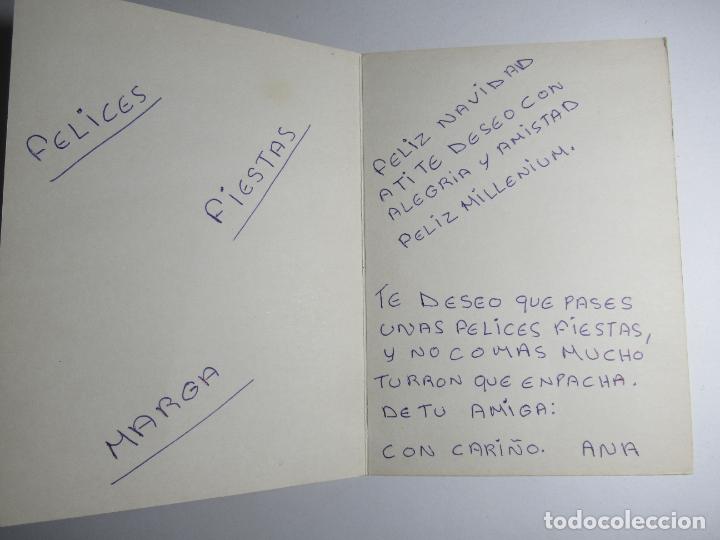 FELICES
FIESTAS
MARGA
FELIZ NAVIDAD
A TI TE DESEO CON
ALEGRIA Y AMISTAD
FELIZ MILLENIUM.
TE DESEO QUE PASES
UNAS FELICES FIESTAS,
Y NO COMAS MUCHO
TURRON QUE ENPACHA.
DE TU AMIGA:
CON CARIÑO. ANA
todocoleccion.net